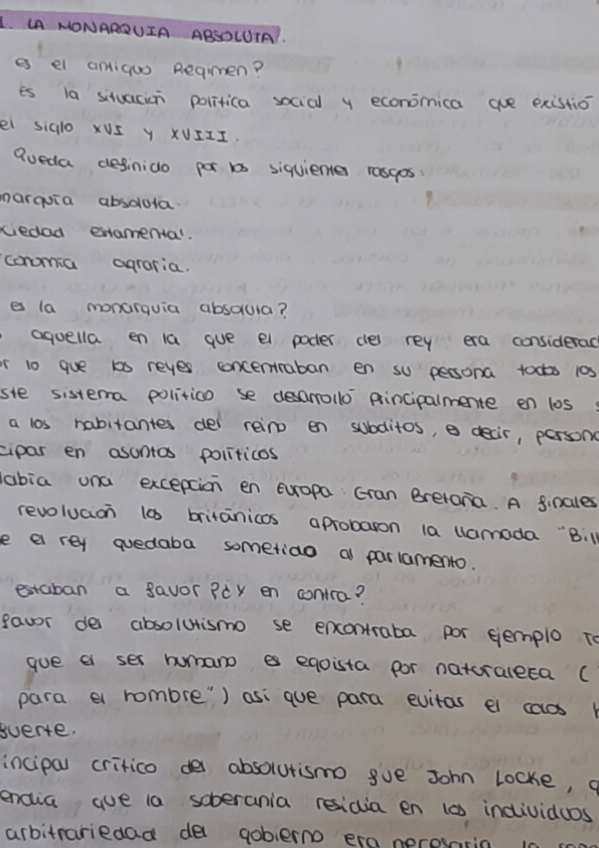 1. LA MONARQUIA ABSOLUTA.
es el antiguo Regimen?
Es la situación política social y económica que existió
el siglo XVI y XVIII.
Queda definido por los siguientes rasgos.
narquía absoluta.
ciedad estamental.
conomía agraria.
es la monarquía absoluta?
aquella en la que el poder del rey era considerac
r lo que los reyes concentraban en su persona todos los
ste sistema político se desarrolló principalmente en los
a los habitantes del reino en subditos, es decir, persona
cipar en asuntos políticos
Había una excepción en Europa: Gran Bretaña. A finales
revolución los británicos aprobaron la llamada "Bill
e el rey quedaba sometido al parlamento.
estaban a favor y en contra?
favor del absolutismo se encontraba por ejemplo
que el ser humano es egoista por naturaleza (
para el hombre") asi que para evitas el caos
fuerte.
incipal crítico del absolutismo fue John Locke, q
endia que la soberanía residia en los individuos
arbitrariedad del gobierno era necesaria la